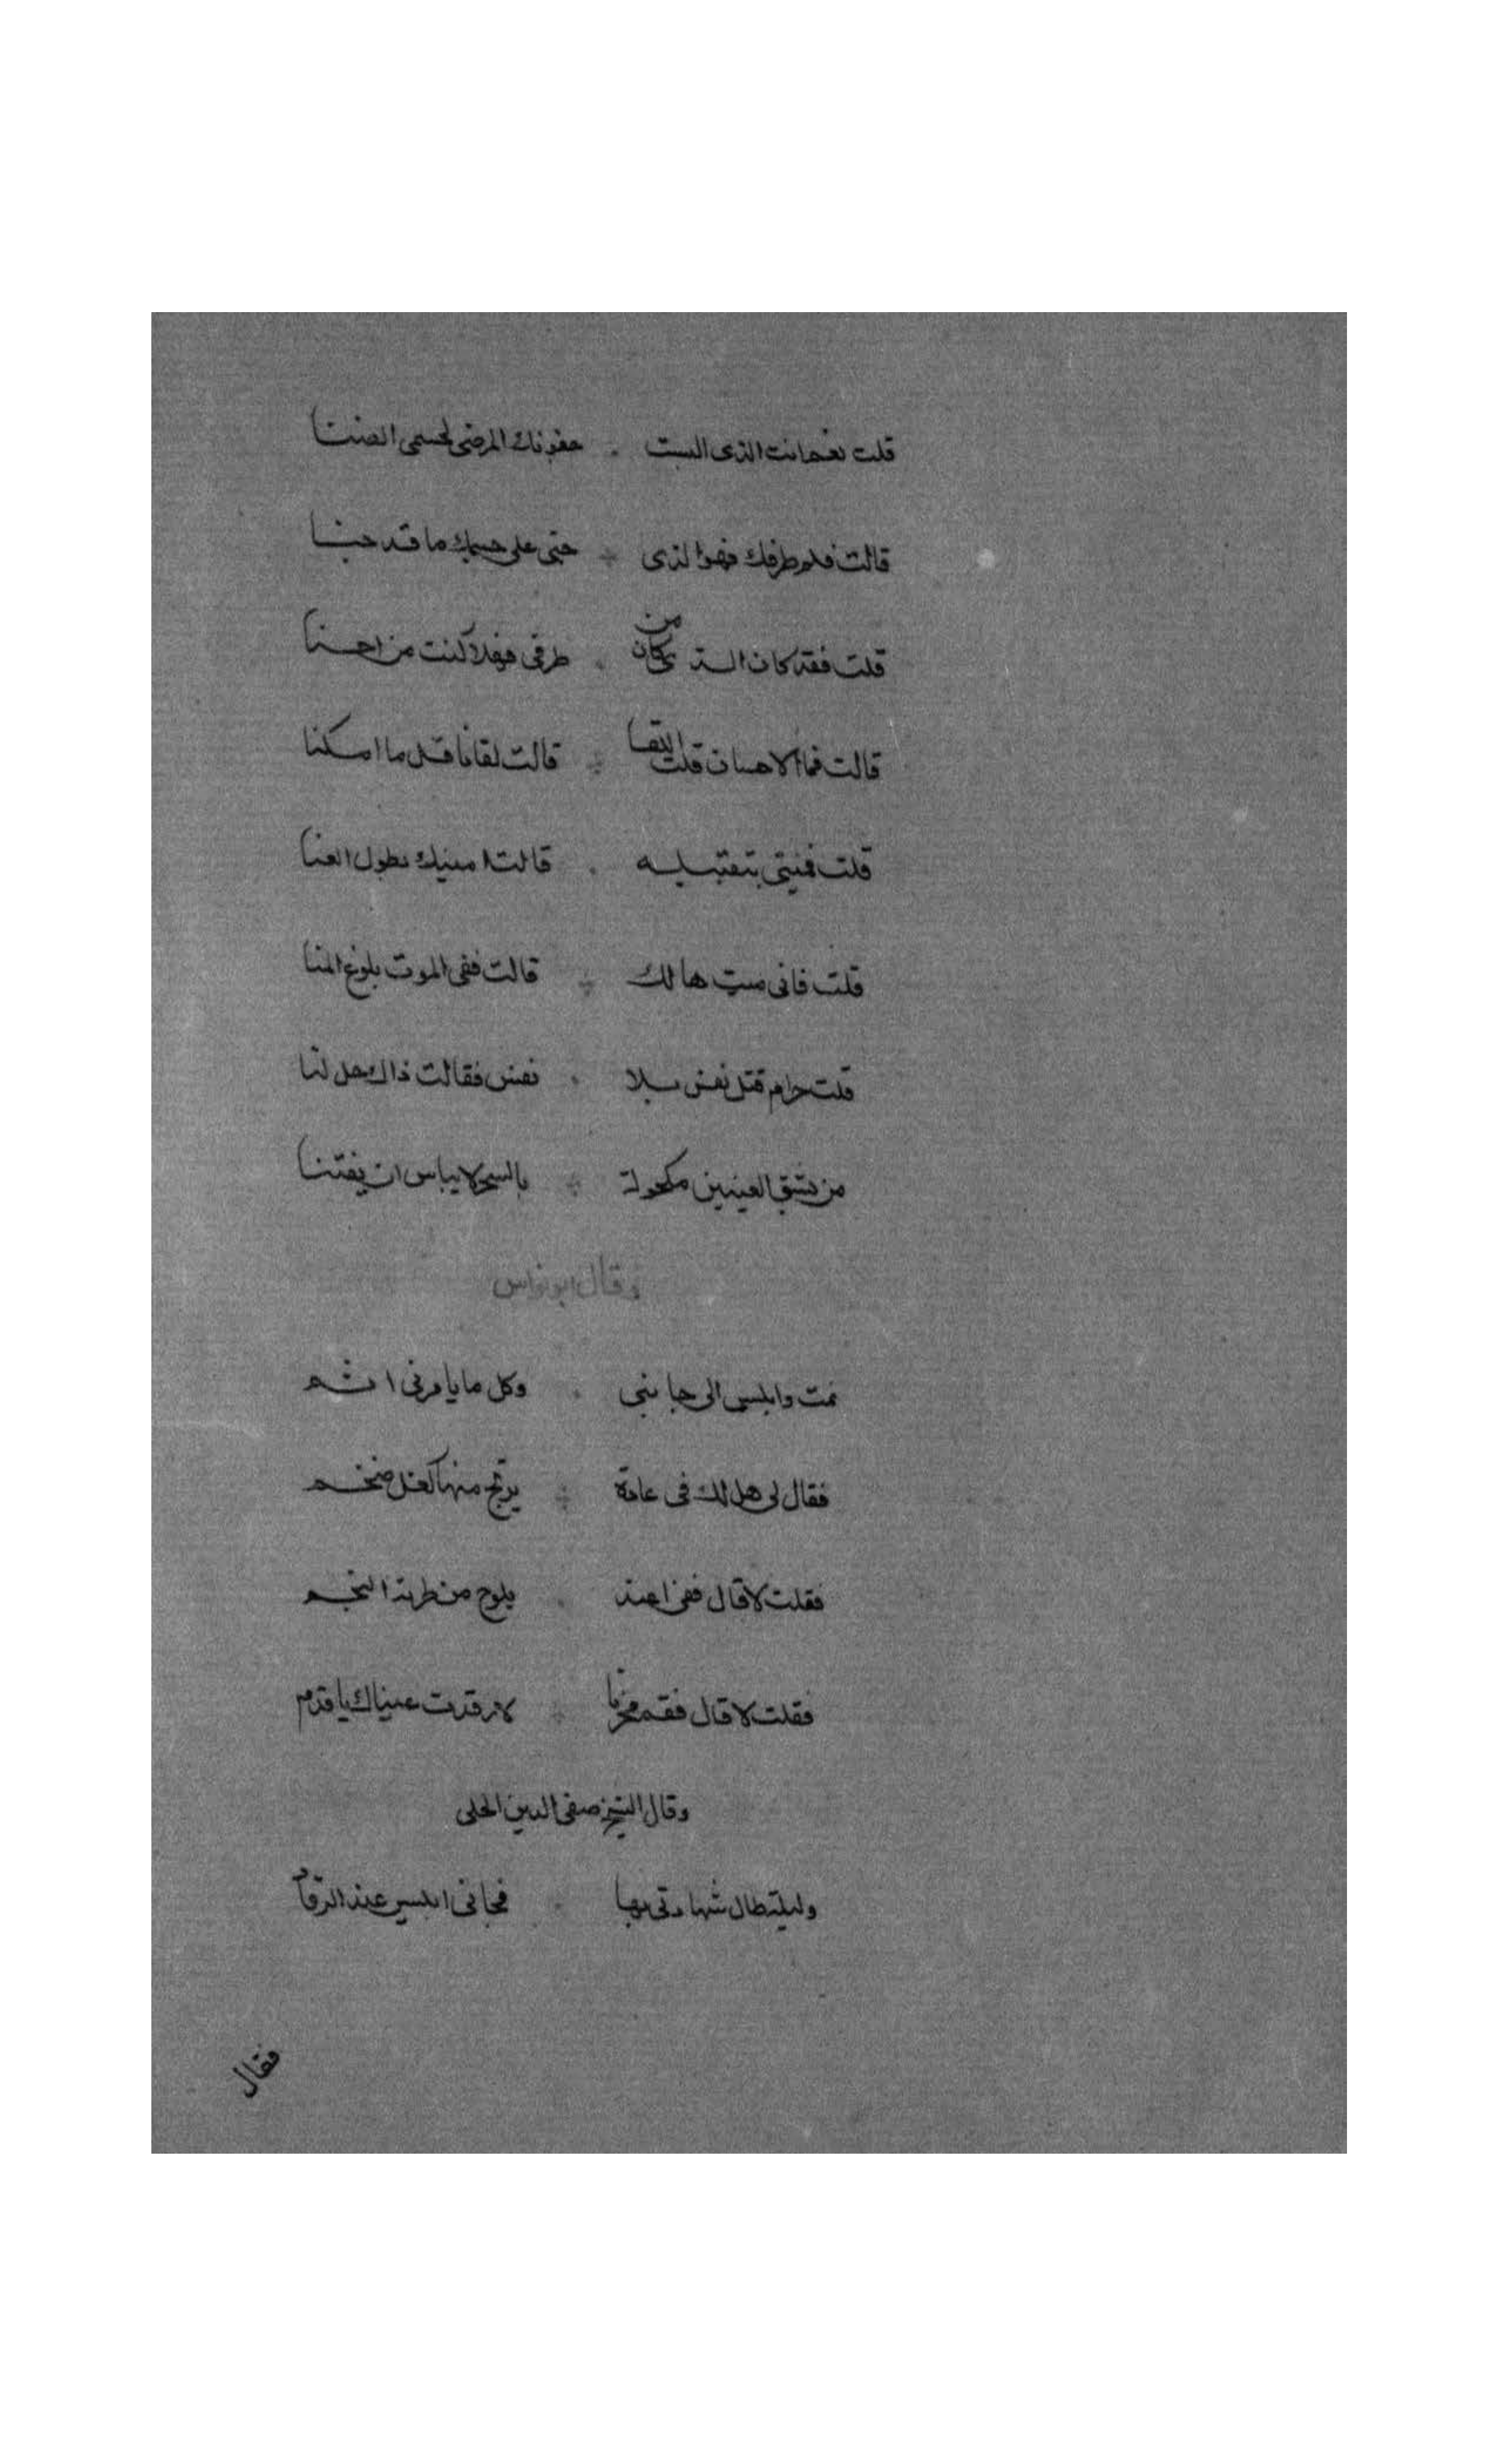 قلت نعم انت الذى البست جفونك المرضى لجسمى الضنا
قالت فلم طرفك فهو الذى جنى على جسمك ما قد جنا
قلت فقد كان الذ كان من طرفى فهلا كنت من احسنا
قالت فما الاحسان قلت اللقا قالت لقانا قل ما امكنا
قلت فمنيتى بتقبيله قالت امنيك بطول العنا
قلت فانى ميت هالك قالت ففى الموت بلوغ المنا
قلت حرام قتل نفس بلا نفس فقالت ذاك حل لنا
من يعشق العينين مكحولة بالسحر لا يباس ان يفتنا
وقال ابو نواس
نمت وابليس الى جانبى وكل ما يامرنى اثم
فقال لى هل لك فى غادة يرتج منها كفل ضخم
فقلت لا قال ففى اغيد يلوح من طرته النجم
فقلت لا قال فقم لا رقدت عيناك يا فدم
وقال الشيخ صفى الدين الحلى
وليلة طال سهادى بها فجانى ابليس عند الرقاد
فقال